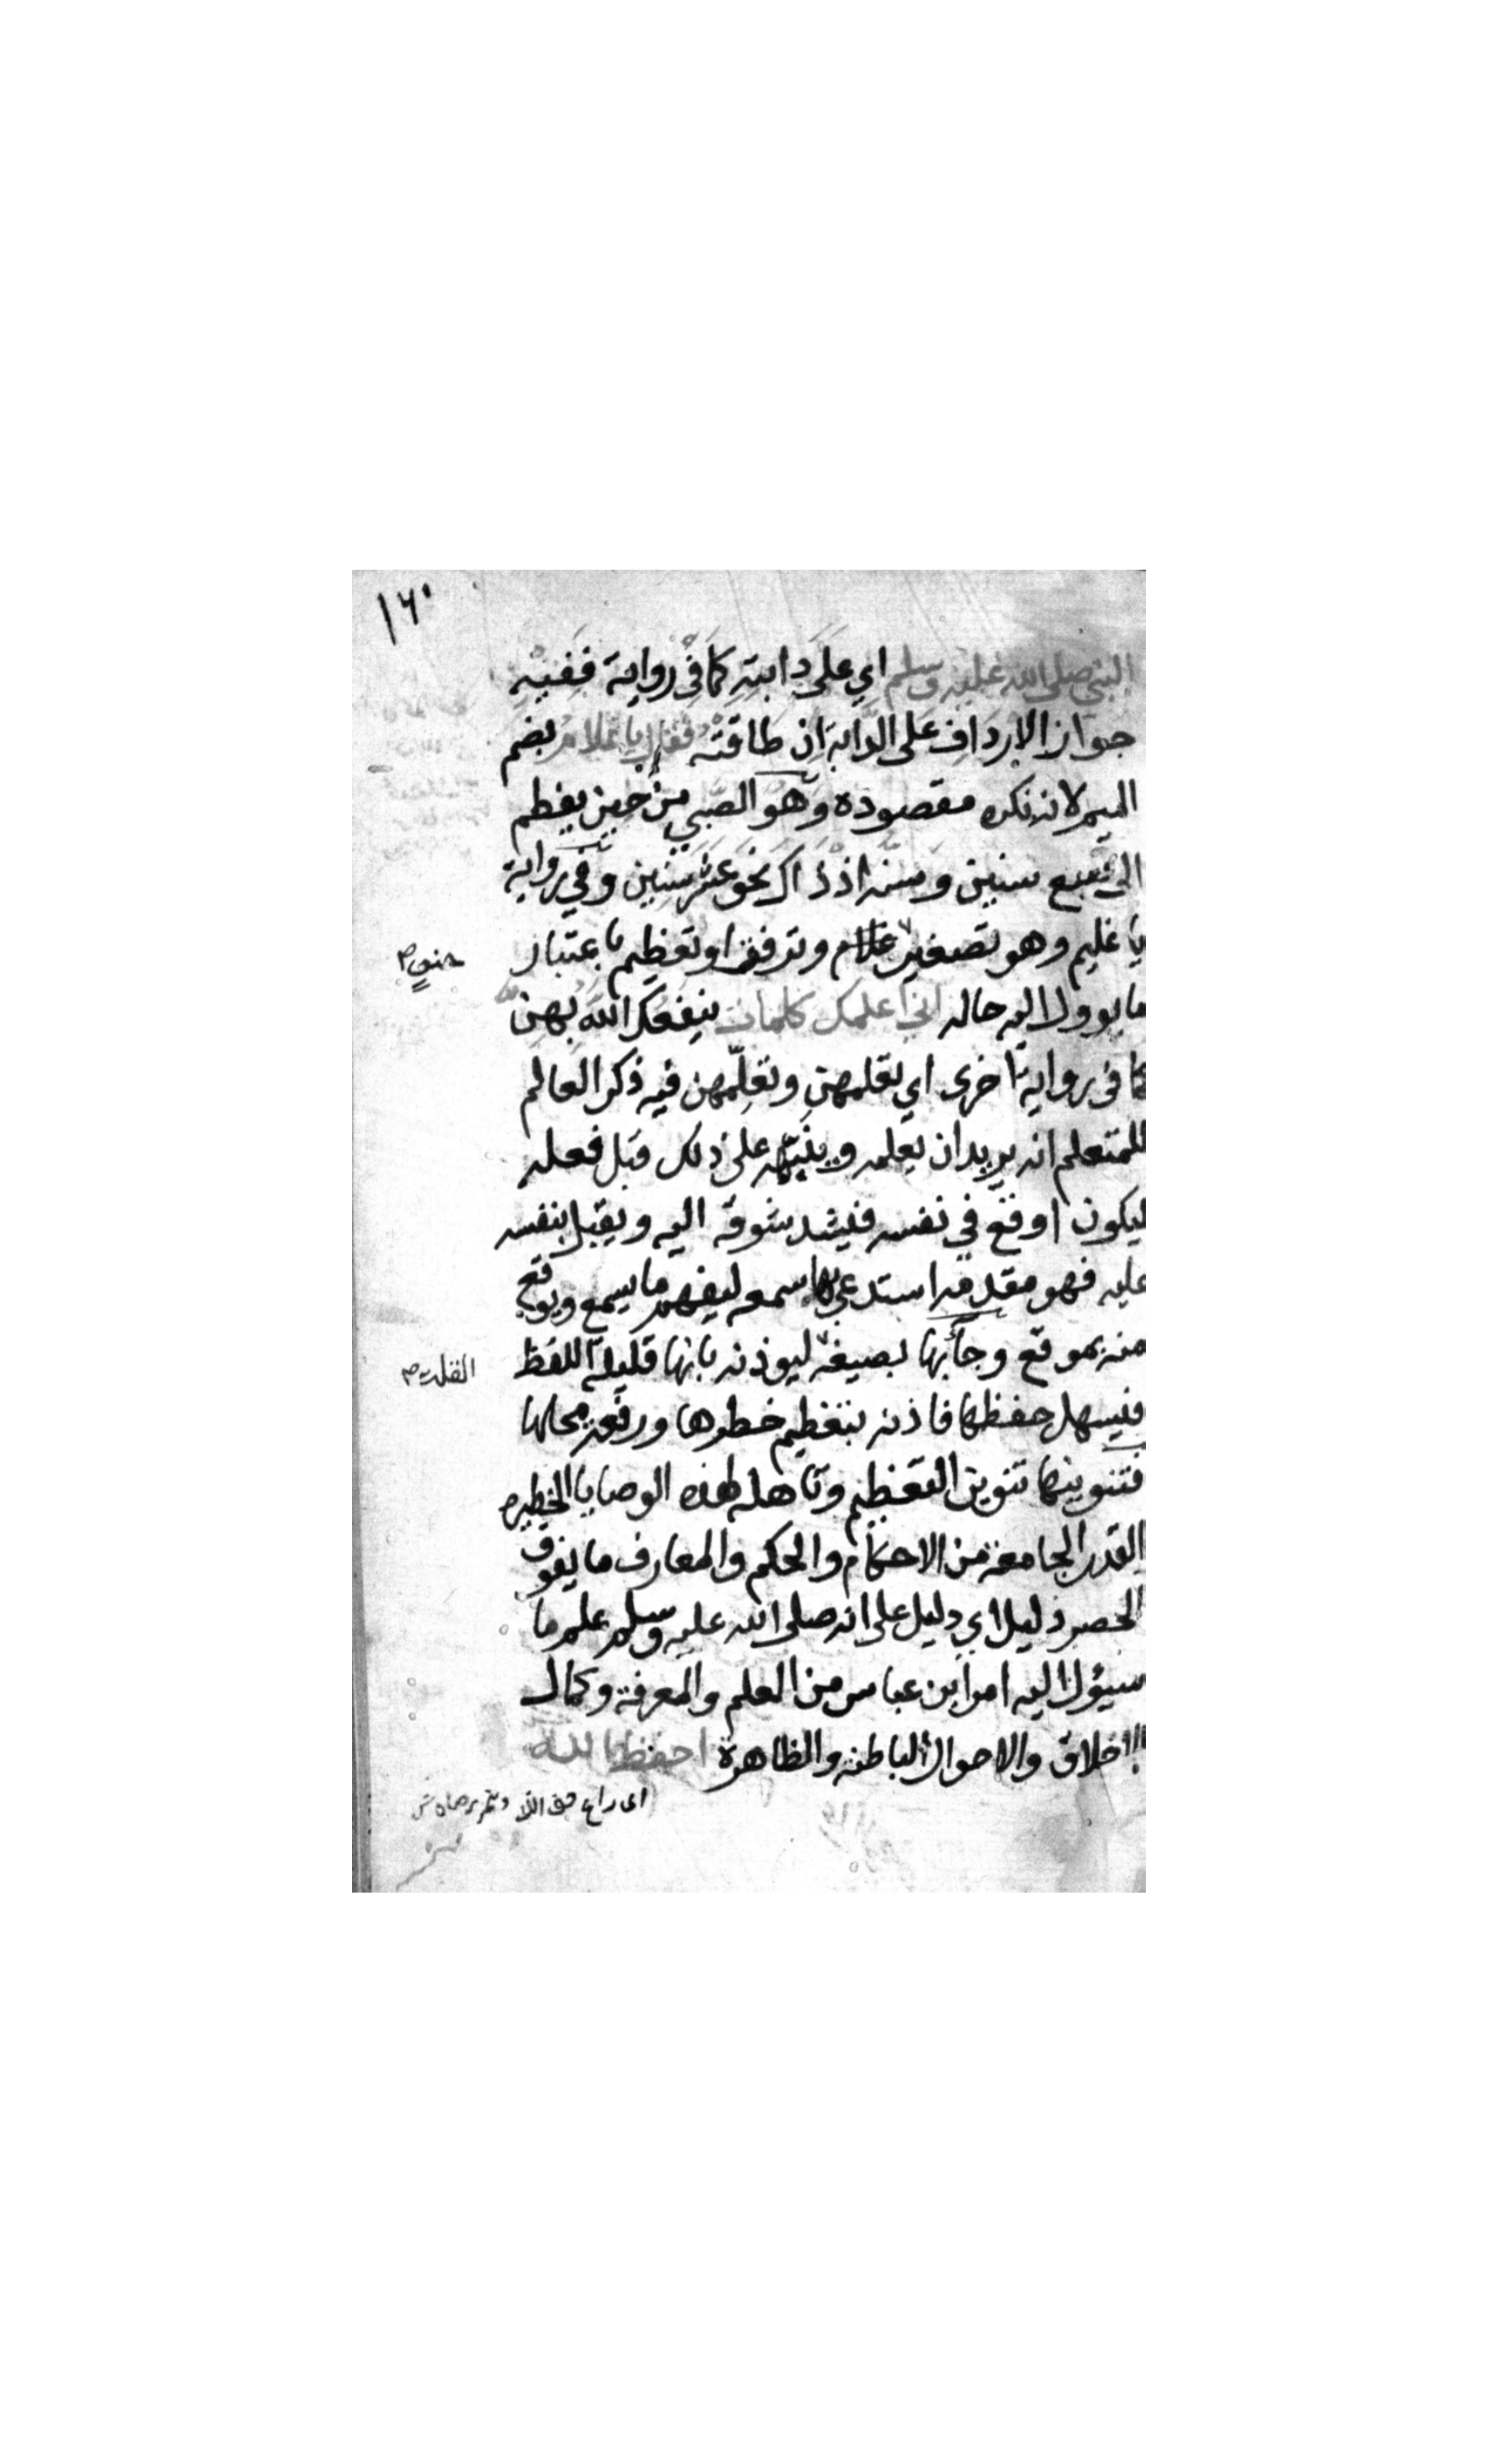 ١٢٠
النبي صلى الله عليه وسلم اي على دابته كما في رواية ففيه
جواز الارداف على الدابة ان طاقته فقال يا غلام بضم
الميم لانه نكره مقصوده وهو الصبي من حين يفطم
الى تسع سنين وسنه اذ ذاك نحو عشر سنين وفي رواية
يا غليم وهو تصغير غلام وترفق او تعظيم باعتبار
حنو م
ما يوول اليه حاله اني اعلمك كلمات ينفعك الله بهن
كما في رواية اخرى اي بعلمهن وتعلمهن فيه ذكر العالم
للمتعلم انه يريد ان يعلمه وينبهه على ذلك قبل فعله
ليكون اوقع في نفسه فيشتد شوقه اليه ويقبل بنفسه
عليه فهو مقدمة استدعى بها سمعه ليفهم ما يسمع ويوقع
منه بموقع وجأ بها بصيغة ليوذنه بانها قليلة اللفظ
القلة م
فيسهل حفظها فاذنه بتعظيم خطرها ورفعة محلها
فتنوينها تنوين التعظيم وتاهله لهذه الوصايا الخطيره
القدر الجامعة من الاحكام والحكم والمعارف ما يفوق
الحصر دليل اي دليل على انه صلى الله عليه وسلم علم ما
سيؤل اليه امر ابن عباس من العلم والمعرفة وكمال
الاخلاق والاحوال الباطنه والظاهرة احفظ الله
اى راع حق الله